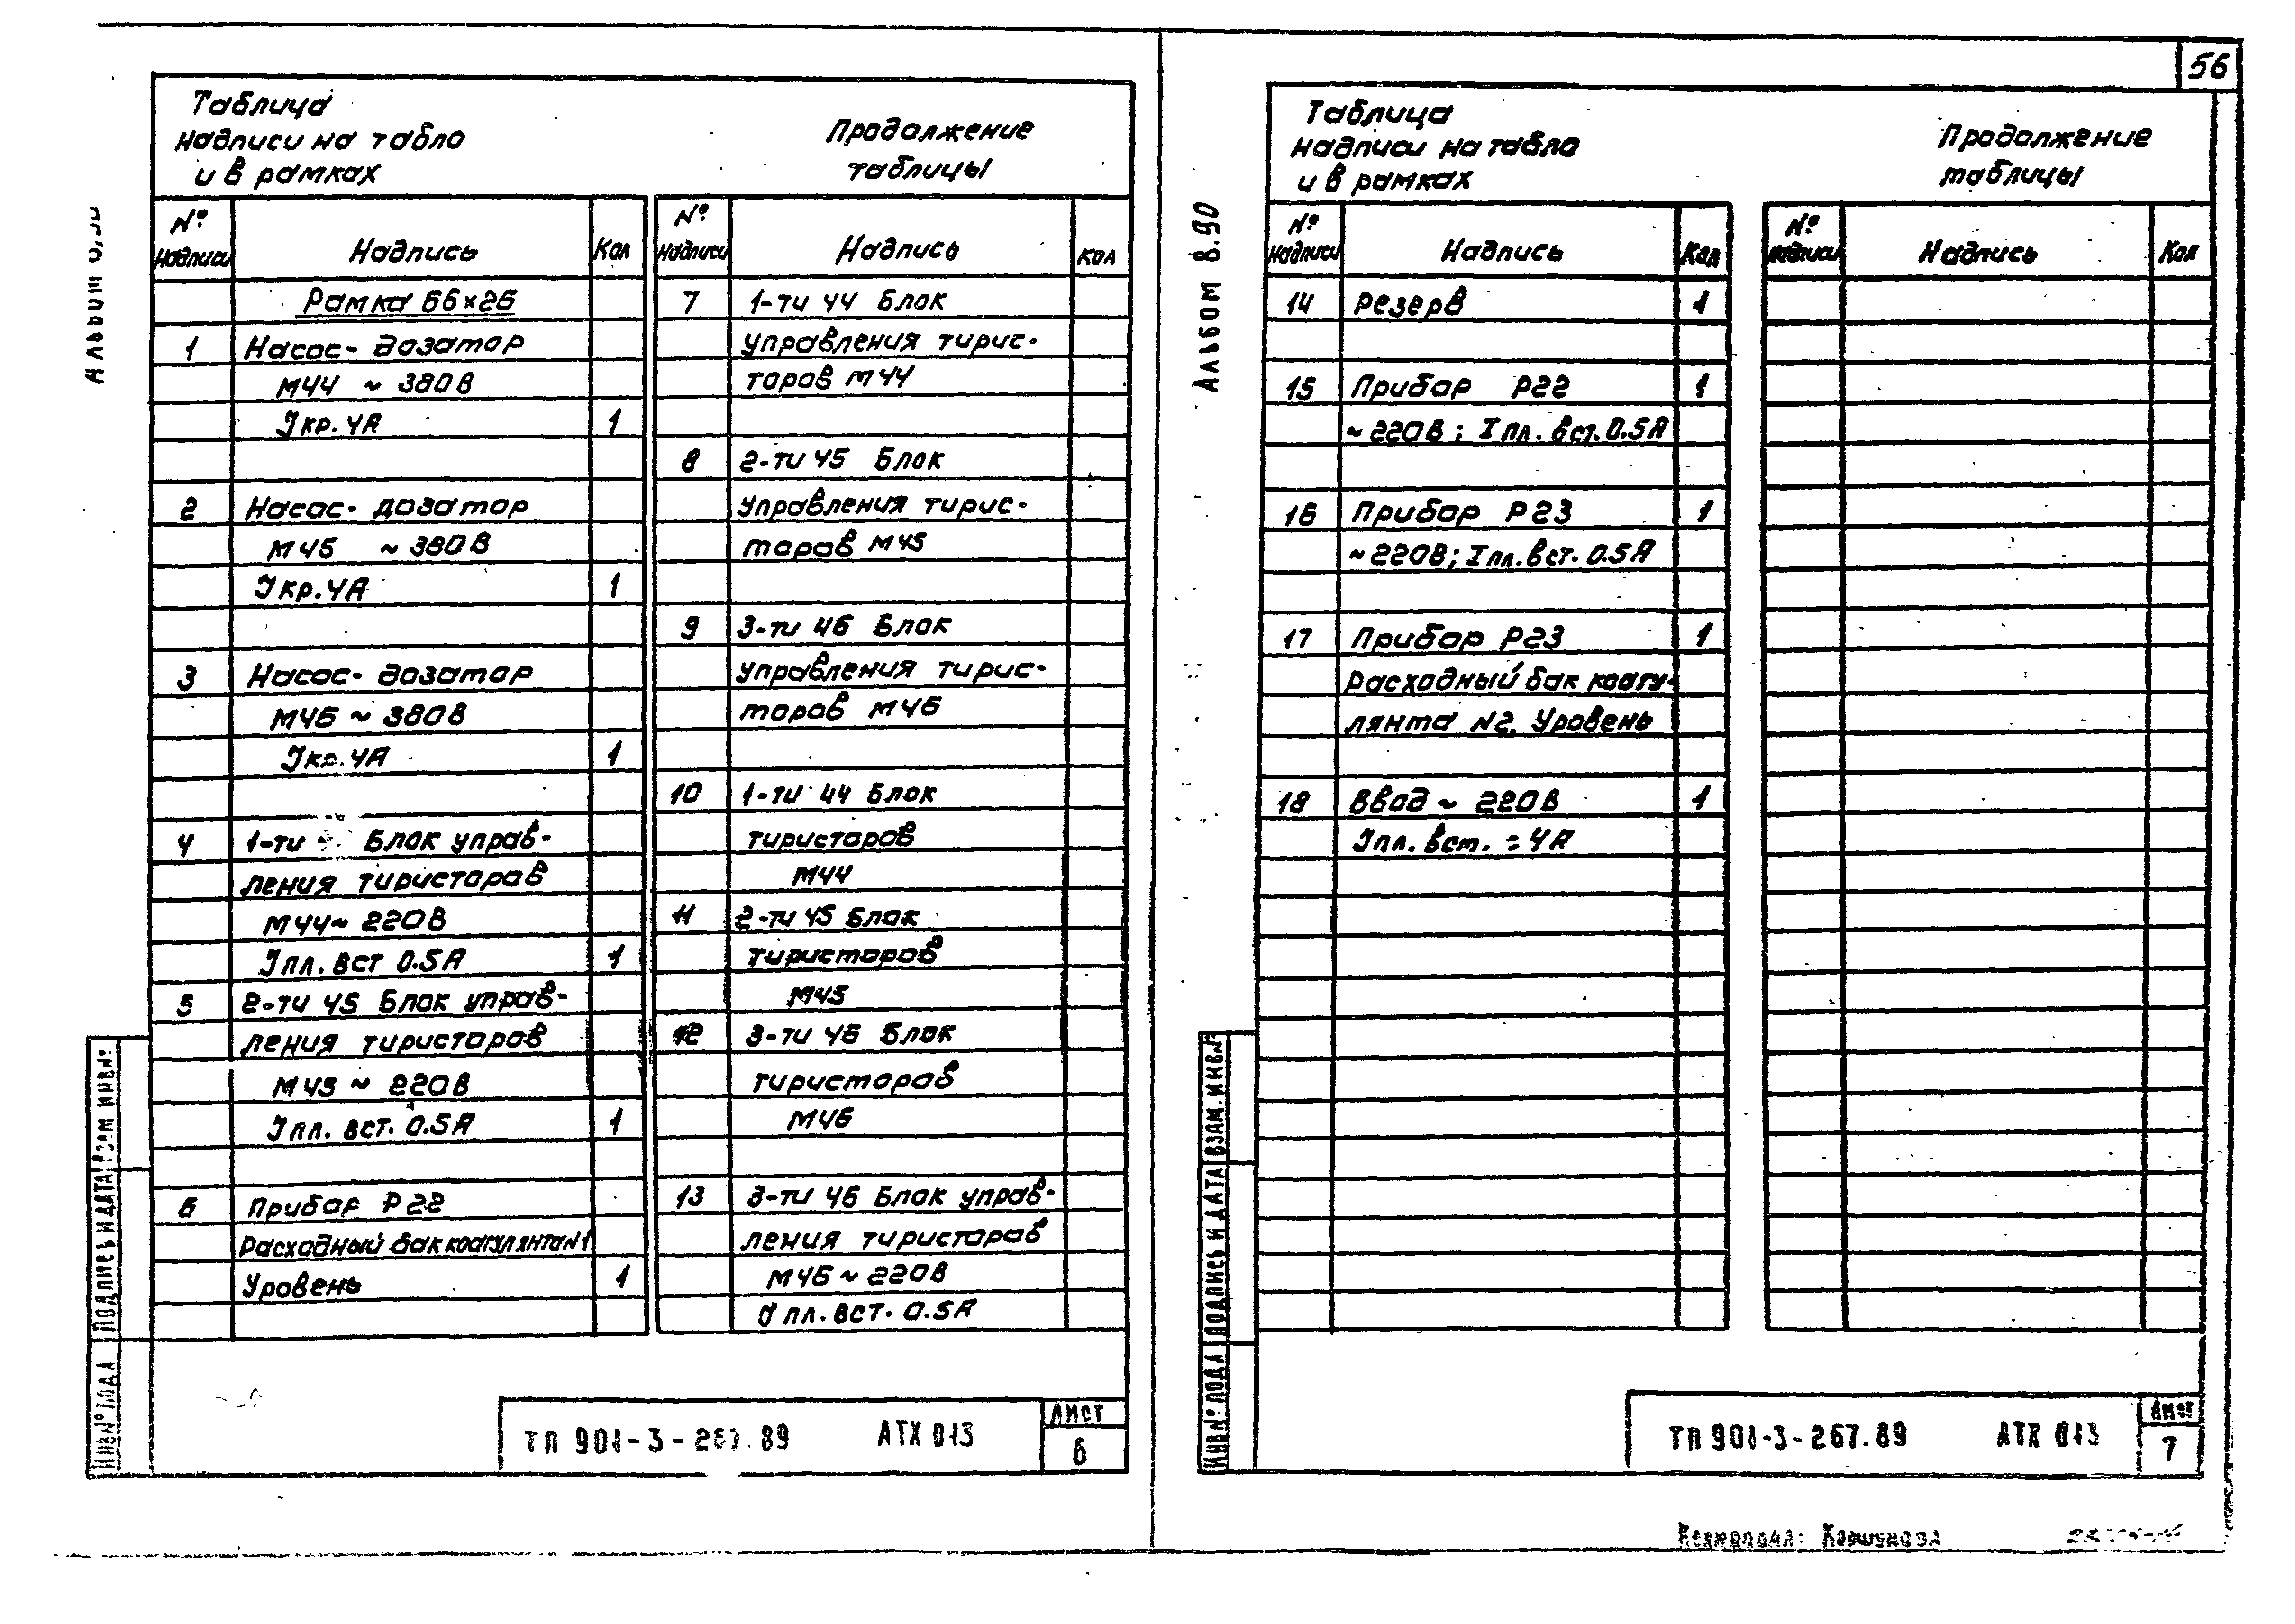 56
Альбом 8.90
Таблица
надписи на табло
и в рамках
Продолжение
таблицы
№
надписи
Надпись
Кол
№
надписи
Надпись
Кол
Рамка 66×26
1 Насос-дозатор
М44 ~ 380В
Iкр. 4А 1
2 Насос-дозатор
М45 ~ 380В
Iкр. 4А 1
3 Насос-дозатор
М46 ~ 380В
Iкр. 4А 1
4 1-ти Блок управ-
ления тиристоров
М44 ~ 220В
Iпл. вст 0.5А 1
5 2-ти 45 Блок управ-
ления тиристоров
М45 ~ 220В
Iпл. вст. 0.5А 1
6 Прибор Р22
Расходный бак коагулянта N1
Уровень 1
7 1-ти 44 Блок
управления тирис-
торов М44
8 2-ти 45 Блок
управления тирис-
торов М45
9 3-ти 46 Блок
управления тирис-
торов М46
10 1-ти 44 Блок
тиристоров
М44
11 2-ти 45 Блок
тиристоров
М45
12 3-ти 46 Блок
тиристоров
М46
13 3-ти 46 Блок управ-
ления тиристоров
М46 ~ 220В
Iпл. вст. 0.5А
ИНВ.№ ПОДЛ
ПОДПИСЬ И ДАТА
ВЗАМ ИНВ.№
ТП 901-3-267.89 АТХ 013
Лист
6
Альбом 8.90
Таблица
надписи на табло
и в рамках
Продолжение
таблицы
№
надписи
Надпись
Кол
№
надписи
Надпись
Кол
14 Резерв 1
15 Прибор Р22 1
~ 220В; Iпл. вст. 0.5А
16 Прибор Р23 1
~ 220В; Iпл. вст. 0.5А
17 Прибор Р23 1
Расходный бак коагу-
лянта N2. Уровень
18 Ввод ~ 220В 1
Iпл. вст. = 4А
ИНВ.№ ПОДЛ
ПОДПИСЬ И ДАТА
ВЗАМ. ИНВ.№
ТП 901-3-267.89 АТХ 013
Лист
7
Копировал: Коршунова